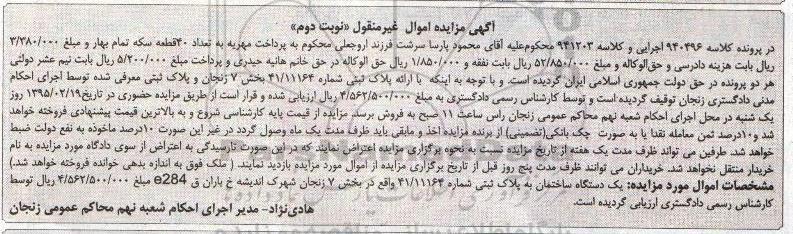 آگهی مزایده اموال غیرمنقول «نوبت دوم»
در پرونده کلاسه ۹۴۰۴۹۶ اجرایی و کلاسه ۹۴۱۲۰۳ محکوم‌علیه آقای محمود پارسا سرشت فرزند اروجعلی محکوم به پرداخت مهریه به تعداد ۴۰قطعه سکه تمام بهار و مبلغ ۳/۳۸۰/۰۰۰
ریال بابت هزینه دادرسی و حق‌الوکاله و مبلغ ۵۲/۸۵۰/۰۰۰ ریال بابت نفقه و ۱/۸۵۰/۰۰۰ ریال حق الوکاله در حق خانم هانیه حیدری و پرداخت مبلغ ۵/۲۰۰/۰۰۰ ریال بابت نیم عشر دولتی
هر دو پرونده در حق دولت جمهوری اسلامی ایران گردیده است. و با توجه به اینکه با ارائه پلاک ثبتی شماره ۴۱/۱۱۱۶۴ بخش ۷ زنجان و پلاک ثبتی معرفی شده توسط اجرای احکام
مدنی دادگستری زنجان توقیف گردیده است و توسط کارشناس رسمی دادگستری به مبلغ ۴/۵۶۲/۵۰۰/۰۰۰ ریال ارزیابی شده و قرار است از طریق مزایده حضوری در تاریخ۱۳۹۵/۰۲/۱۹ روز
یک شنبه در محل اجرای احکام شعبه نهم محاکم عمومی زنجان راس ساعت ۱۱ صبح به فروش برسد. مزایده از قیمت پایه کارشناسی شروع و به بالاترین قیمت پیشنهادی فروخته خواهد
شد و۱۰درصد ثمن معامله نقدا یا به صورت چک بانکی(تضمینی) از برنده مزایده اخذ و مابقی باید ظرف مدت یک ماه وصول گردد در غیر این صورت ۱۰درصد ماخوذه به نفع دولت ضبط
خواهد شد. طرفین می تواند ظرف مدت یک هفته از تاریخ مزایده نسبت به نحوه برگزاری مزایده اعتراض نمایند که در این صورت تارسیدگی به اعتراض از سوی دادگاه مورد مزایده به نام
خریدار منتقل نخواهد شد. خریداران می توانند ظرف مدت پنج روز قبل از تاریخ برگزاری مزایده از اموال مورد مزایده بازدید نمایند. ( ملک فوق به اندازه بدهی خوانده فروخته خواهد شد.)
مشخصات اموال مورد مزایده: یک دستگاه ساختمان به پلاک ثبتی شماره ۴۱/۱۱۱۶۴ واقع در بخش ۷ زنجان شهرک اندیشه خ باران ق e284 به مبلغ ۴/۵۶۲/۵۰۰/۰۰۰ ریال توسط
کارشناس رسمی دادگستری ارزیابی گردیده است.
هادی‌نژاد- مدیر اجرای احکام شعبه نهم محاکم عمومی زنجان